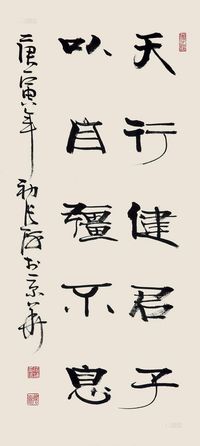 天行健君子
以自彊不息
庚寅年初 於京華